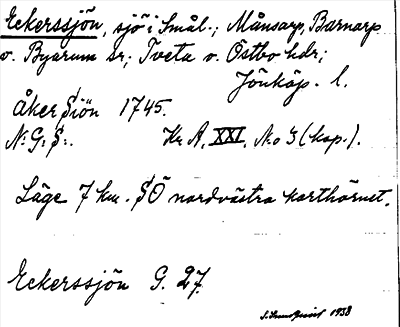 Eckerssjön, sjö i Smål.; Månsarp, Barnarp
o. Byarum sr; Tveta o. Östbo hdr;
Jönköp. l.
Åker Siön 1745.
N: G: S:. Kr A, XXI, No 3 (kop.).
Läge 7 km. SÖ nordvästra karthörnet.
Eckerssjön G. 27.
1938